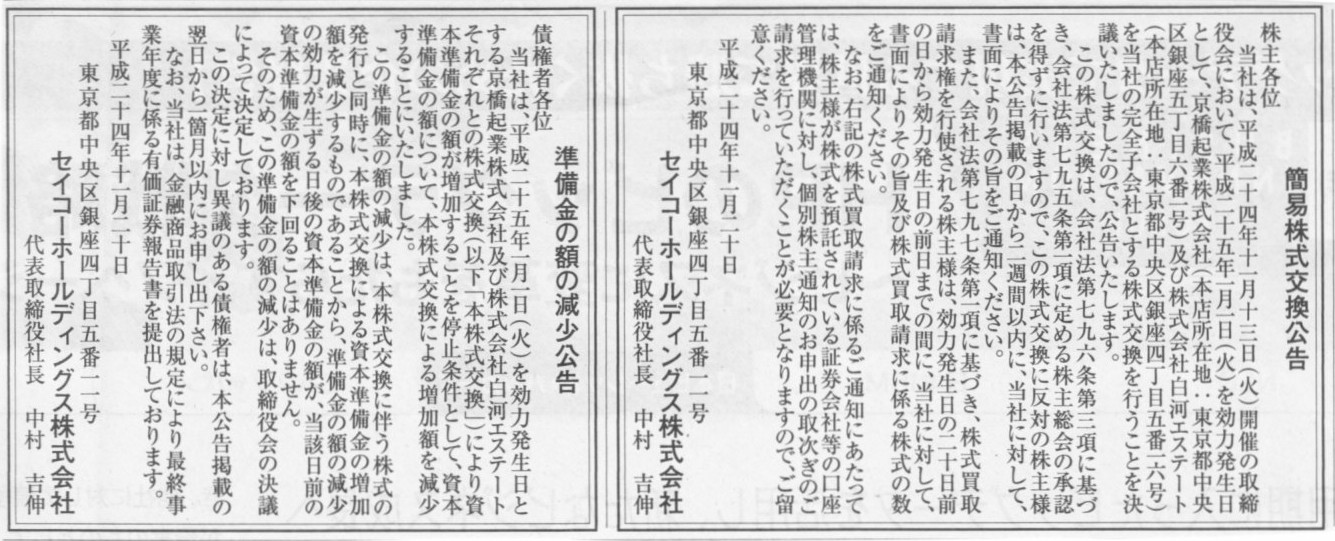 簡易株式交換公告
株主各位
　当社は、平成二十四年十一月十三日（火）開催の取締
役会において、平成二十五年一月一日（火）を効力発生日
として、京橋起業株式会社（本店所在地：東京都中央
区銀座五丁目六番一号）及び株式会社白河エステート
（本店所在地：東京都中央区銀座四丁目五番一六号）
を当社の完全子会社とする株式交換を行うことを決
議いたしましたので、公告いたします。
　この株式交換は、会社法第七九六条第三項に基づ
き、会社法第七九五条第一項に定める株主総会の承認
を得ずに行いますので、この株式交換に反対の株主様
は、本公告掲載の日から二週間以内に、当社に対して、
書面によりその旨をご通知ください。
　また、会社法第七九七条第一項に基づき、株式買取
請求権を行使される株主様は、効力発生日の二十日前
の日から効力発生日の前日までの間に、当社に対して
書面によりその旨及び株式買取請求に係る株式の数
をご通知ください。
　なお、右記の株式買取請求に係るご通知にあたって
は、株主様が株式を預託されている証券会社等の口座
管理機関に対し、個別株主通知のお申出の取次ぎのご
請求を行っていただくことが必要となりますので、ご留
意ください。
　平成二十四年十一月二十日
東京都中央区銀座四丁目五番一一号
セイコーホールディングス株式会社
代表取締役社長　中村　吉伸
準備金の額の減少公告
債権者各位
　当社は、平成二十五年一月一日（火）を効力発生日と
する京橋起業株式会社及び株式会社白河エステート
それぞれとの株式交換（以下「本株式交換」）により資
本準備金の額が増加することを停止条件として、資本
準備金の額について、本株式交換による増加額を減少
することにいたしました。
　この準備金の額の減少は、本株式交換に伴う株式の
発行と同時に、本株式交換による資本準備金の増加
額を減少するものであることから、準備金の額の減少
の効力が生ずる日後の資本準備金の額が、当該日前の
資本準備金の額を下回ることはありません。
　そのため、この準備金の額の減少は、取締役会の決議
によって決定しております。
　この決定に対し異議のある債権者は、本公告掲載の
翌日から一箇月以内にお申し出下さい。
　なお、当社は、金融商品取引法の規定により最終事
業年度に係る有価証券報告書を提出しております。
　平成二十四年十一月二十日
東京都中央区銀座四丁目五番一一号
セイコーホールディングス株式会社
代表取締役社長　中村　吉伸